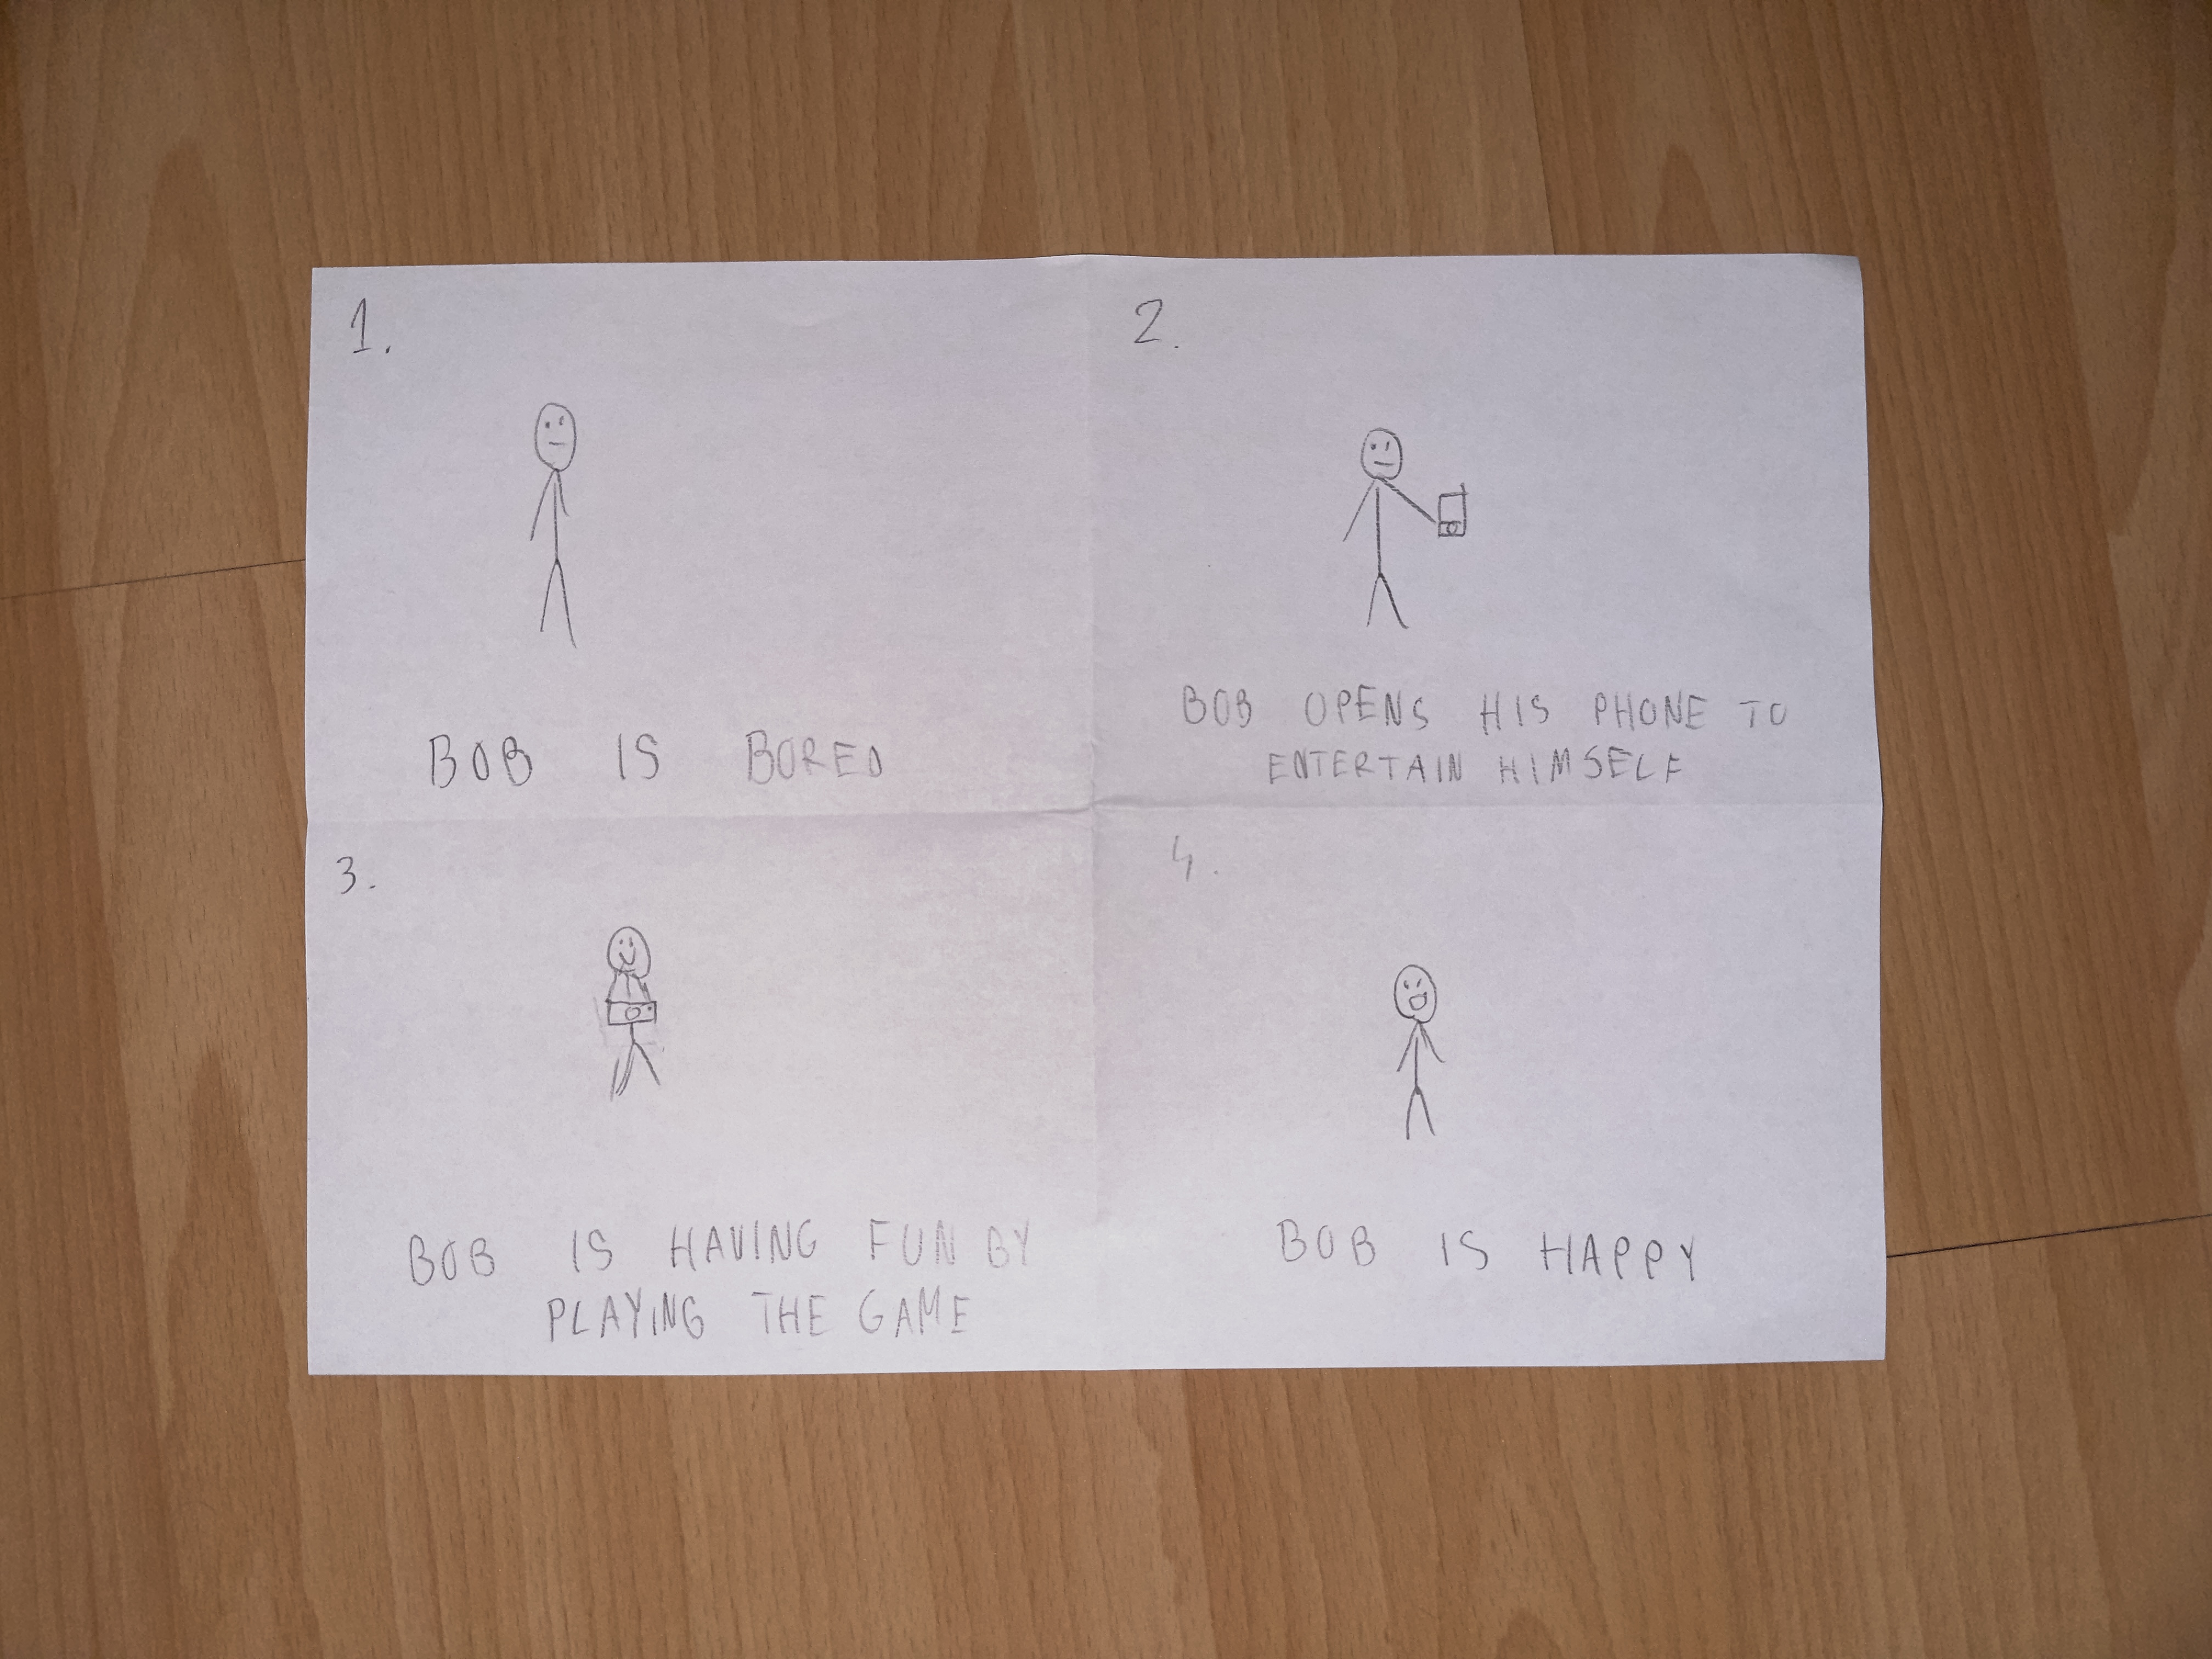 1.
BOB IS BORED
2.
BOB OPENS HIS PHONE TO
ENTERTAIN HIMSELF
3.
BOB IS HAVING FUN BY
PLAYING THE GAME
4.
BOB IS HAPPY